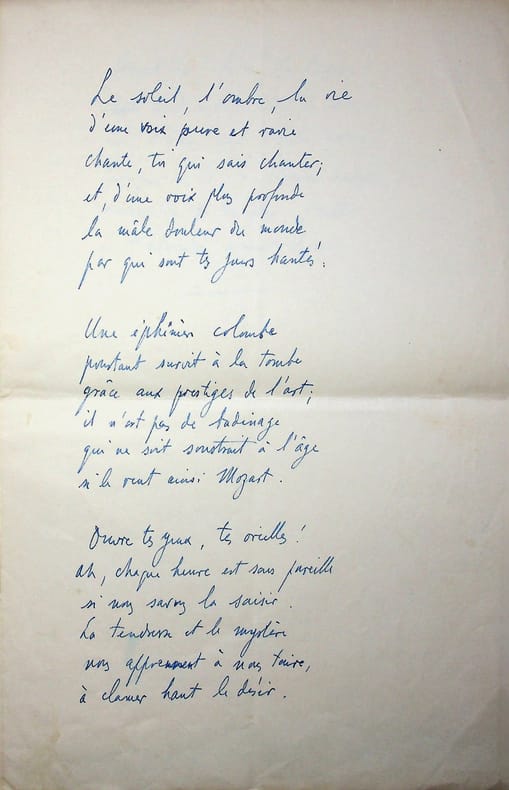 Le soleil, l'ombre, la vie
d'une voix pure et ravie
chante, tu qui sais chanter;
et, d'une voix plus profonde
la mâle douleur du monde
par qui sont tes jours hantés.
Une éphémère colombe
pourtant survit à la tombe
grâce aux prestiges de l'art;
il n'est pas de badinage
qui ne soit soustrait à l'âge
si le veut ainsi Mozart.
Ouvre tes yeux, tes oreilles!
ah, chaque heure est sans pareille
si nous savons la saisir.
La tendresse et le mystère
nous apprennent à nous taire,
à clamer haut le désir.